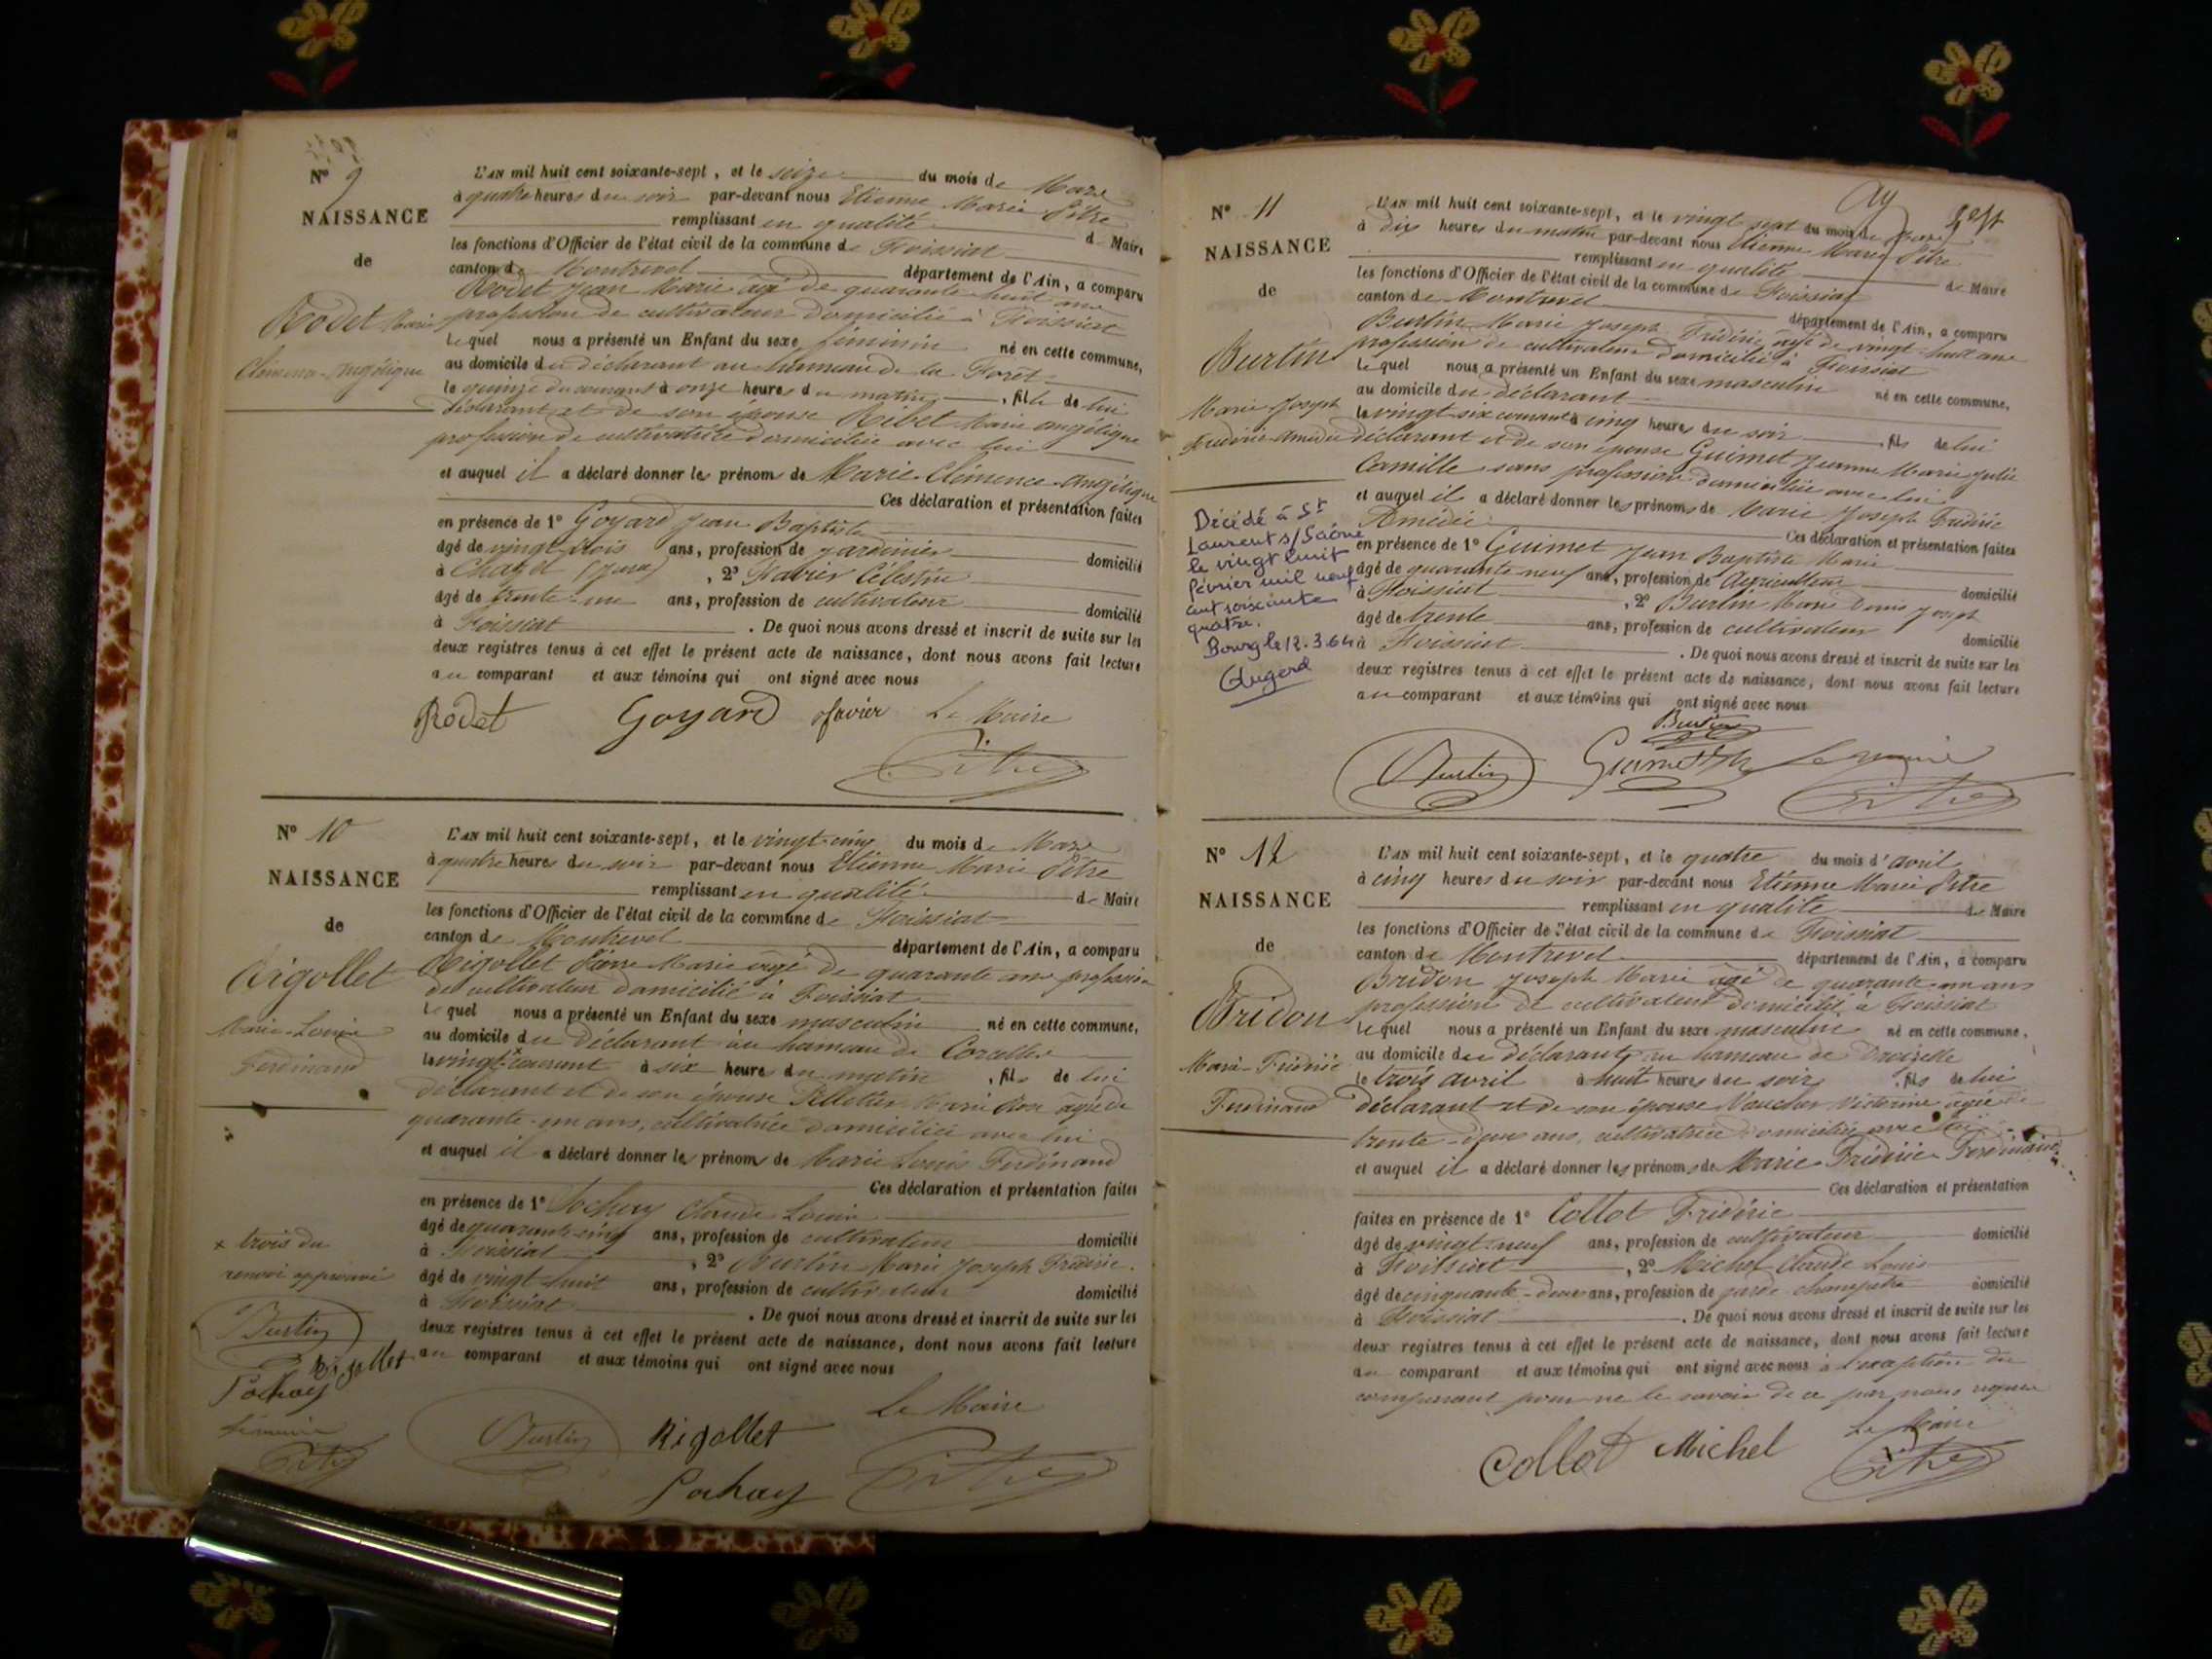 N° 9
NAISSANCE
de
Rodet Marie
Clémence-Angélique
L'AN mil huit cent soixante-sept, et le seize du mois de Mars
à quatre heures du soir par-devant nous Etienne Marie Pitre
remplissant en qualité de Maire
les fonctions d'Officier de l'état civil de la commune de Foissiat
canton de Montrevel département de l'Ain, a comparu
Rodet Jean Marie âgé de quarante huit ans
profession de cultivateur domicilié à Foissiat
lequel nous a présenté un Enfant du sexe féminin né en cette commune,
au domicile du déclarant au hameau de la Forêt
le quinze du courant à onze heures du matin, fille de lui
déclarant et de son épouse Ribet Marie Angélique
profession de cultivatrice domiciliée avec lui
et auquel il a déclaré donner les prénoms de Marie Clémence Angélique
Ces déclaration et présentation faites
en présence de 1° Goyard Jean Baptiste
âgé de vingt trois ans, profession de jardinier domicilié
à (Jura), 2° Favier Célestin
âgé de trente-un ans, profession de cultivateur domicilié
à Foissiat. De quoi nous avons dressé et inscrit de suite sur les
deux registres tenus à cet effet le présent acte de naissance, dont nous avons fait lecture
au comparant et aux témoins qui ont signé avec nous
Rodet Goyard favier Le Maire
Pitre
N° 10
NAISSANCE
de
Rigollet
Marie-Louis
Ferdinand
L'AN mil huit cent soixante-sept, et le vingt-cinq du mois de Mars
à quatre heures du soir par-devant nous Etienne Marie Pitre
remplissant en qualité de Maire
les fonctions d'Officier de l'état civil de la commune de Foissiat
canton de Montrevel département de l'Ain, a comparu
Rigollet Pierre Marie âgé de quarante ans profession
de cultivateur domicilié à Foissiat
lequel nous a présenté un Enfant du sexe masculin né en cette commune,
au domicile du déclarant au hameau de
le vingt x courant à six heures du matin, fils de lui
déclarant et de son épouse Pelletier Marie Rose âgée de
quarante-un ans, cultivatrice domiciliée avec lui
et auquel il a déclaré donner les prénoms de Marie Louis Ferdinand
Ces déclaration et présentation faites
en présence de 1° Pochay Claude Louis
âgé de quarante-cinq ans, profession de cultivateur domicilié
à Foissiat, 2° Burtin Marie Joseph Frédéric
âgé de vingt huit ans, profession de cultivateur domicilié
à Foissiat. De quoi nous avons dressé et inscrit de suite sur les
deux registres tenus à cet effet le présent acte de naissance, dont nous avons fait lecture
au comparant et aux témoins qui ont signé avec nous
x trois du
renvoi approuvé
Burtin
Rigollet
Pochay
Le maire
Pitre
Le Maire
Burtin Rigollet
Pochay Pitre
N° 11
NAISSANCE
de
Burtin
Marie Joseph
Frédéric Amédée
L'AN mil huit cent soixante-sept, et le vingt sept du mois de Mars
à dix heures du matin par-devant nous Etienne Marie Pitre
remplissant en qualité de Maire
les fonctions d'Officier de l'état civil de la commune de Foissiat
canton de Montrevel département de l'Ain, a comparu
Burtin Marie Joseph Frédéric âgé de vingt-huit ans
profession de cultivateur domicilié à Foissiat
lequel nous a présenté un Enfant du sexe masculin né en cette commune,
au domicile du déclarant
le vingt six courant à cinq heures du soir, fils de lui
déclarant et de son épouse Guimet Jeanne Marie Julie
Camille sans profession domiciliée avec lui
et auquel il a déclaré donner les prénoms de Marie Joseph Frédéric
Amédée Ces déclaration et présentation faites
en présence de 1° Guimet Jean Baptiste Marie
âgé de quarante neuf ans, profession de Agriculteur domicilié
à Foissiat, 2° Burtin Marie Denis Joseph
âgé de trente ans, profession de cultivateur domicilié
à Foissiat. De quoi nous avons dressé et inscrit de suite sur les
deux registres tenus à cet effet le présent acte de naissance, dont nous avons fait lecture
au comparant et aux témoins qui ont signé avec nous
Décédé à St
Laurent s/Saône
le vingt huit
février mil neuf
cent soixante
quatre.
Bourg le 12.3.64
Augerd
Burtin
Burtin Guimet Le maire
Pitre
N° 12
NAISSANCE
de
Bridon
Marie-Frédéric
Ferdinand
L'AN mil huit cent soixante-sept, et le quatre du mois d'avril
à cinq heures du soir par-devant nous Etienne Marie Pitre
remplissant en qualité de Maire
les fonctions d'Officier de l'état civil de la commune de Foissiat
canton de Montrevel département de l'Ain, a comparu
Bridon Joseph Marie âgé de quarante-un ans
profession de cultivateur domicilié à Foissiat
lequel nous a présenté un Enfant du sexe masculin né en cette commune,
au domicile du déclarant au hameau de
le trois avril à huit heures du soir, fils de lui
déclarant et de son épouse Vaucher Victorine âgée de
trente-deux ans, cultivatrice domiciliée avec lui
et auquel il a déclaré donner les prénoms de Marie-Frédéric Ferdinand
Ces déclaration et présentation
faites en présence de 1° Collot Frédéric
âgé de vingt-neuf ans, profession de cultivateur domicilié
à Foissiat, 2° Michel Claude Louis
âgé de cinquante-deux ans, profession de garde-champêtre domicilié
à Foissiat. De quoi nous avons dressé et inscrit de suite sur les
deux registres tenus à cet effet le présent acte de naissance, dont nous avons fait lecture
au comparant et aux témoins qui ont signé avec nous à l'exception du
comparant pour ne le savoir de ce par nous requis
Le Maire
Collot Michel Pitre